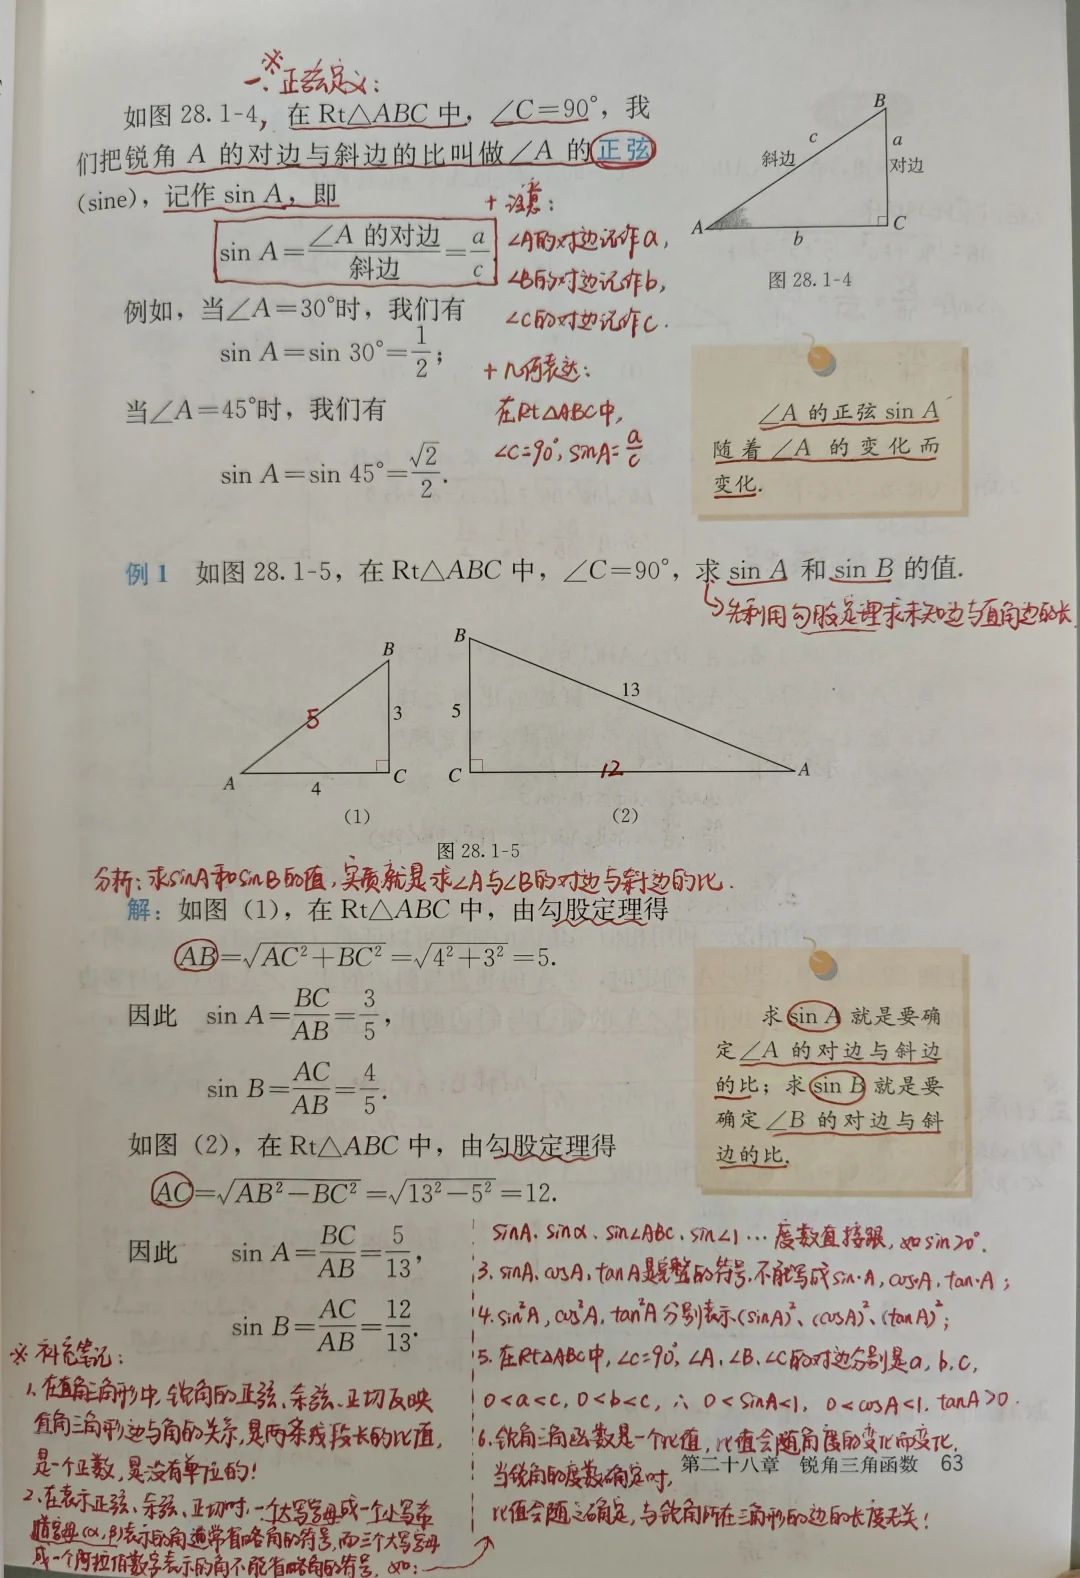 一、※正弦定义:
如图28.1-4,在Rt△ABC中,∠C=90°,我
们把锐角A的对边与斜边的比叫做∠A的正弦
(sine),记作sin A,即
sin A=∠A的对边/斜边=a/c
例如,当∠A=30°时,我们有
sin A=sin 30°=1/2;
当∠A=45°时,我们有
sin A=sin 45°=√2/2.
+注意:
∠A的对边记作a,
∠B的对边记作b,
∠C的对边记作c.
+几何表达:
在Rt△ABC中,
∠C=90°,sinA=a/c
B
c
a
斜边
对边
A
b
C
图28.1-4
∠A的正弦sin A
随着∠A的变化而
变化.
例1 如图28.1-5,在Rt△ABC中,∠C=90°,求sin A和sin B的值.
先利用勾股定理求未知边与直角边的长
B
5
3
A
4
C
(1)
B
13
5
C
12
A
(2)
图28.1-5
分析:求sinA和sinB的值,实质就是求∠A与∠B的对边与斜边的比.
解:如图(1),在Rt△ABC中,由勾股定理得
AB=√AC²+BC²=√4²+3²=5.
因此 sin A=BC/AB=3/5,
sin B=AC/AB=4/5.
求sin A就是要确
定∠A的对边与斜边
的比;求sin B就是要
确定∠B的对边与斜
边的比.
如图(2),在Rt△ABC中,由勾股定理得
AC=√AB²-BC²=√13²-5²=12.
因此 sin A=BC/AB=5/13,
sin B=AC/AB=12/13.
※补充笔记:
1.在直角三角形中,锐角的正弦、余弦、正切反映
直角三角形边与角的关系,是两条线段长的比值,
是一个正数,是没有单位的!
2.在表示正弦、余弦、正切时,一个大写字母或一个小写希
腊字母(α,β)表示的角通常省略角的符号,而三个大写字母
或一个阿拉伯数字表示的角不能省略角的符号,如:
sinA、sinα、sin∠ABC、sin∠1…度数直接跟,如sin20°.
3.sinA、cosA、tanA是完整的符号,不能写成sin·A,cos·A,tan·A;
4.sin²A,cos²A,tan²A分别表示(sinA)²、(cosA)²、(tanA)²;
5.在Rt△ABC中,∠C=90°,∠A、∠B、∠C的对边分别是a,b,c,
0<a<c,0<b<c,∴0<sinA<1,0<cosA<1,tanA>0.
6.锐角三角函数是一个比值,比值会随角度的变化而变化.
当锐角的度数确定时,
比值会随之确定,与锐角所在三角形的边的长度无关!
第二十八章 锐角三角函数 63